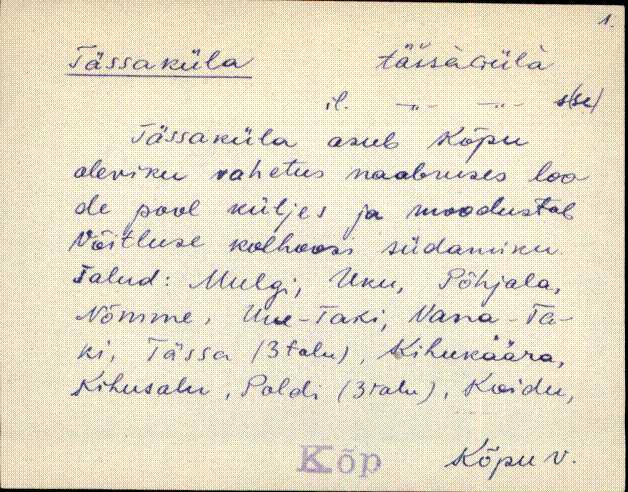 1.
Tässaküla tässàɢülà
il. -"- -"- s(se)
Tässaküla asub Kõpu
aleviku vahetus naabruses loo
de pool küljes ja moodustab
Võitluse kolhoosi südamiku.
Talud: Mulgi, Uku, Põhjala,
Nõmme, Uue-Taki, Vana-Ta-
ki, Tässa (3 talu), Kihukäära,
Kihusalu, Poldi (3 talu), Koidu,
Kõp Kõpu v.